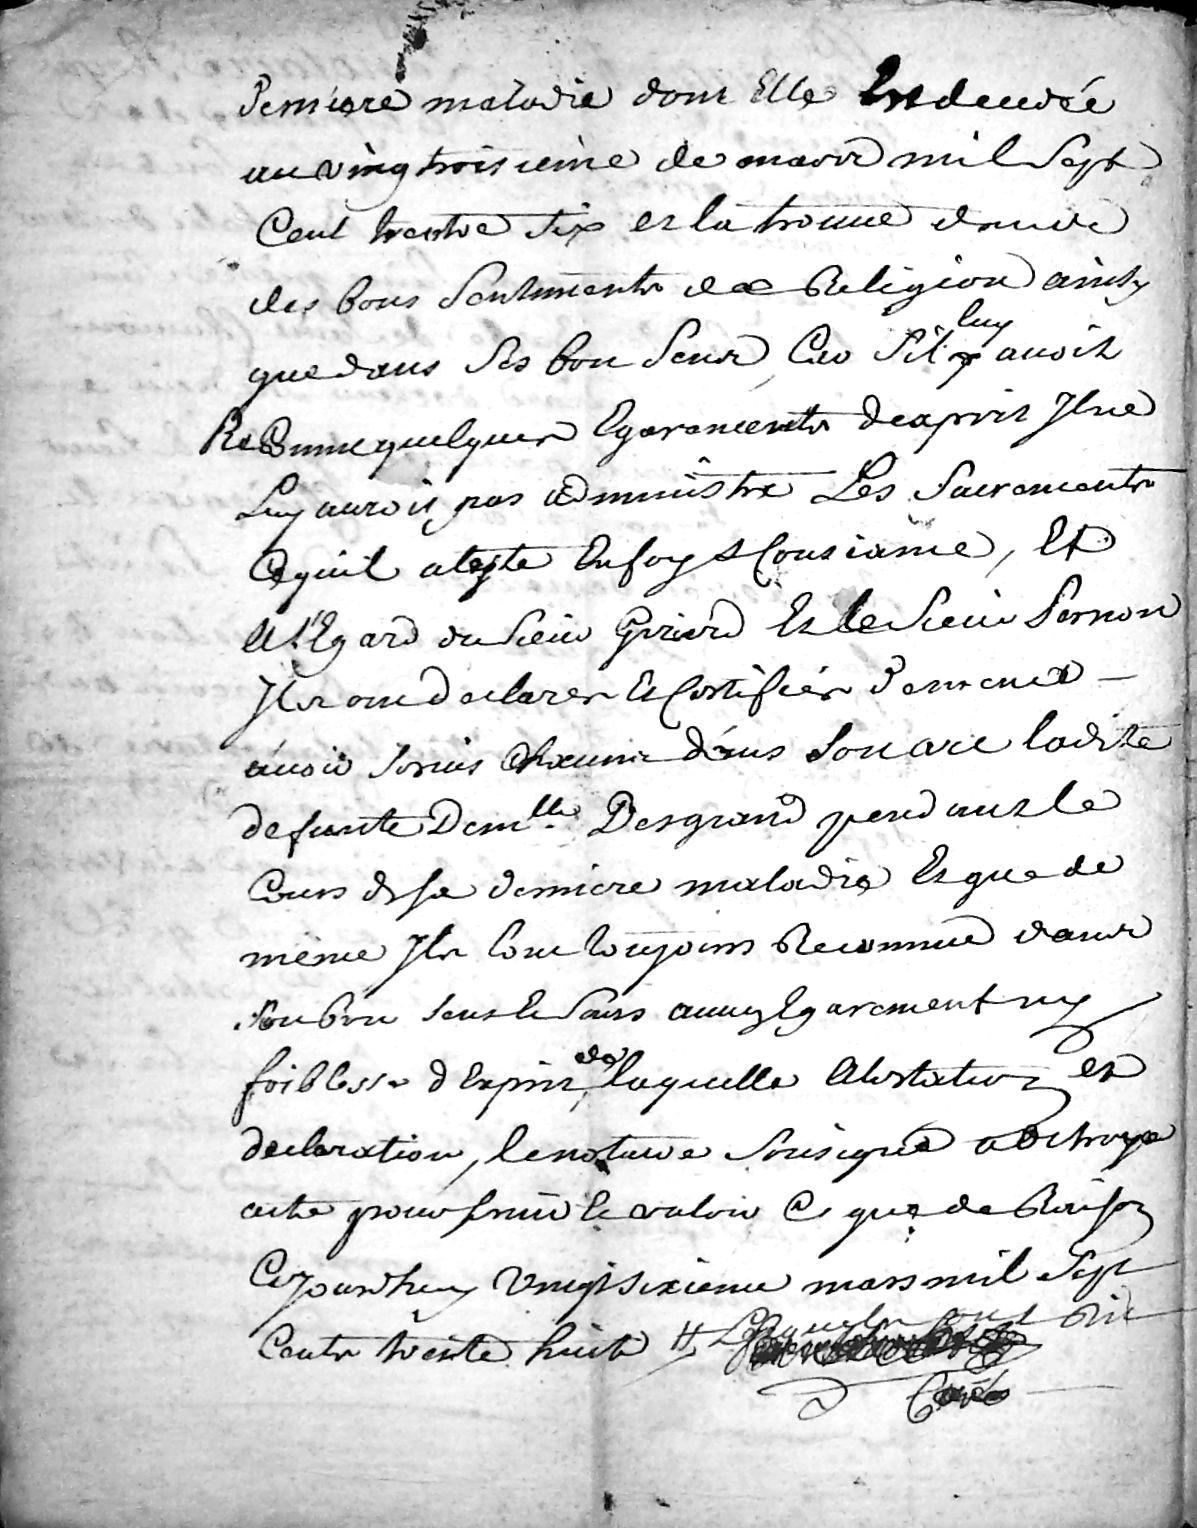 derniere maladie dont Elle Est decedée
au vingtroisieme de mars mil Sept
Cent trente Six et la trouué
des bons Sentiments de Religion ainsy
que dans Ses bon Sens Car Sil luy avoit
Reconnu quelques Egarements desprit Il ne
Luy auroit pas administre Les Sacrements
Ce quil ateste En foy & Consiance, Et
A l'Egard du Sieur Girard Et le Sieur Sernon
Ils ont declarer Et Certifier
avoir servis Chacun dans Son art ladite
defunte Demlle. Desgrand pendant le
Cours de sa derniere maladie Et que de
même Ils lont toujours Reconnue dans
son bon sens Et Sans aucuy Egarement ny
foiblesse d'Esprit, de laquelle Atestation et
declaration, le notaire Sousigné a octroye
acte pour servir & valoir Ce que de Raison
Cejourdhuy vingtsixieme mars mil Sept
Cents trente huit